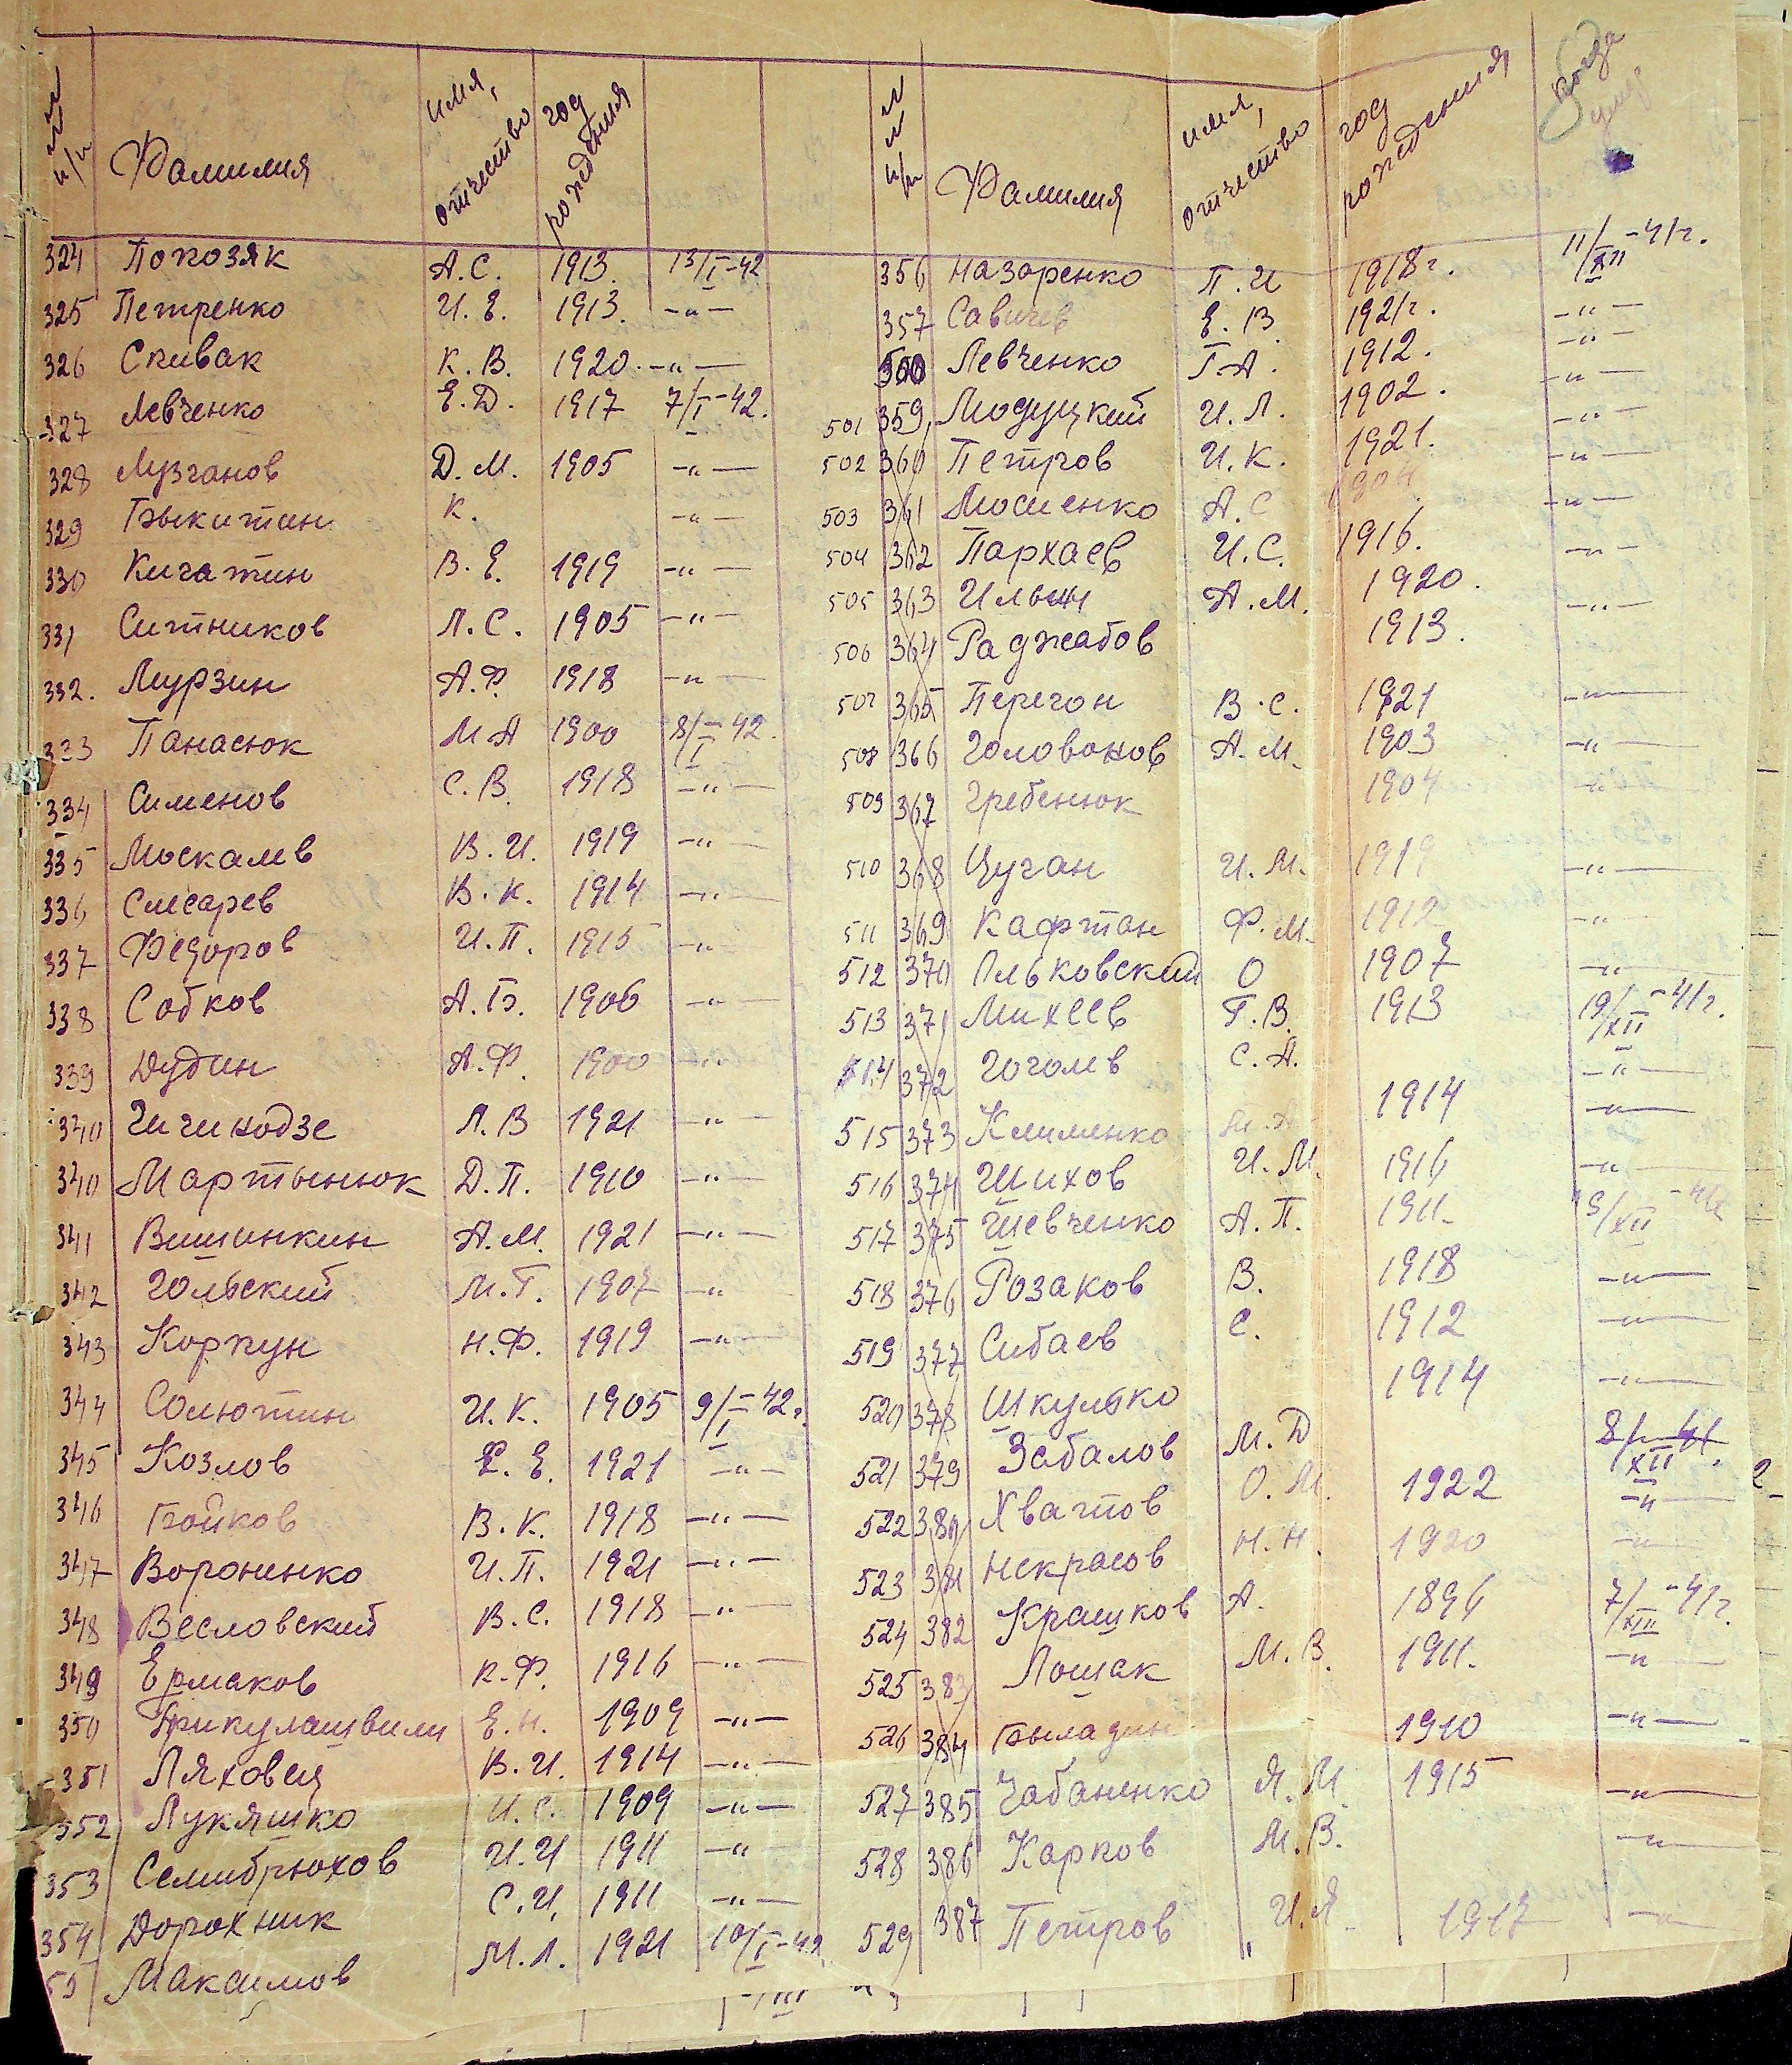 №№ п/п Фамилия имя, отчество год рождения
324 Попозяк А.С. 1913. 13/I-42
325 Петренко И.Е. 1913. -"-
326 Спивак К.В. 1920. -"-
327 Левченко Е.Д. 1917 7/I-42.
328 Лузганов Д.М. 1905 -"-
329 Быкитин К. -"-
330 Кичатин В.Е. 1919 -"-
331 Ситников Л.С. 1905 -"-
332. Мурзин А.Ф. 1918 -"-
333 Панасюк М.А 1900 8/I-42.
334 Сименов С.В. 1918 -"-
335 Москалев В.И. 1919 -"-
336 Слесарев В.К. 1914 -"-
337 Федоров И.П. 1915 -"-
338 Собков А.Б. 1906 -"-
339 Дудин А.Ф. 1900 -"-
340 Чичикодзе Л.В 1921 -"-
340 Мартынюк Д.П. 1910 -"-
341 Вишинкин А.М. 1921 -"-
342 Гольский М.Г. 1907 -"-
343 Коркун Н.Ф. 1919 -"-
344 Солютин И.К. 1905 9/I-42г.
345 Козлов Е. 1921 -"-
346 Бойков В.К. 1918 -"-
347 Вороненко И.П. 1921 -"-
348 Весловский В.С. 1918 -"-
349 Ермаков К.Ф. 1916 -"-
350 Трикулашвили Е.Н. 1909 -"-
351 Ляховец В.И. 1914 -"-
352 Лукяшко И.С. 1909 -"-
353 Семибрюхов И.И 1911 -"-
354 Дорохник С.И. 1911 -"-
55 Максимов М.Л. 1921 10/I-42
№№ п/п Фамилия имя, отчество год рождения когда умер
356 Назаренко П.И 1918г. 11/XII-41г.
357 Савичев Е.В. 1921г. -"-
Левченко Г.А. 1912. -"-
501 359 Модуцкий И.Л. 1902. -"-
502 360 Петров И.К. 1921. -"-
503 361 Мосиенко А.С -"-
504 362 Пархаев И.С. 1916. -"-
505 363 Ильин А.М. 1920. -"-
506 364 Раджабов 1913. -"-
507 365 Перегон В.С. 1921 -"-
508 366 Головонов А.М. 1903 -"-
509 367 Гребенюк 1904 -"-
510 368 Цуган И.М. 1919 -"-
511 369 Кафтан Ф.М. 1912 -"-
512 370 Льковский О 1907 -"-
513 371 Михеев Г.В. 1913 19/XII-41г.
514 372 Гоголев С.А. -"-
515 373 Клименко 1914 -"-
516 374 Шихов И.М. 1916 -"-
517 375 Шевченко А.П. 1911. 9/XII-41г
518 376 Розаков В. 1918 -"-
519 377 Сибаев С. 1912 -"-
520 378 Шкулько 1914 -"-
521 379 Забалов М.Д 8/XII-41.
522 380 Хватов О.М. 1922 -"-
523 381 Некрасов Н.Н. 1920 -"-
524 382 Крашков А. 1896 7/XII-41г.
525 383 Лошак М.В. 1911. -"-
526 384 Быладин 1910 -"-
527 385 Чабаненко Я.М. 1915 -"-
528 386 Карков М.В. -"-
529 387 Петров И.Я. 1917 -"-